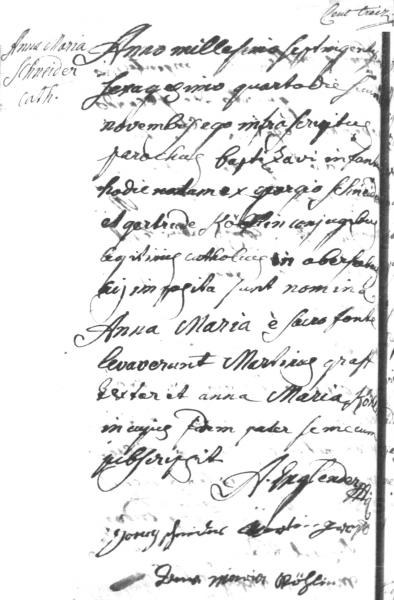 Cent treiz
Anna Maria
Schneider
Cath.
Anno millesimo septingent
sexagesimo quarto die
novembris ego infra scriptus
parochus baptizavi infan
hodie natam ex georgio schneid
et gertrude Köhlin conjugibus
legitimis catholicis in
cui imposita sunt nomina
Anna Maria è sacro fonte
levaverunt Martinus graff
et anna Maria Köhl
in cujus fidem pater se mecum
subscripsit
A. Englender
Anna maria Köhlin